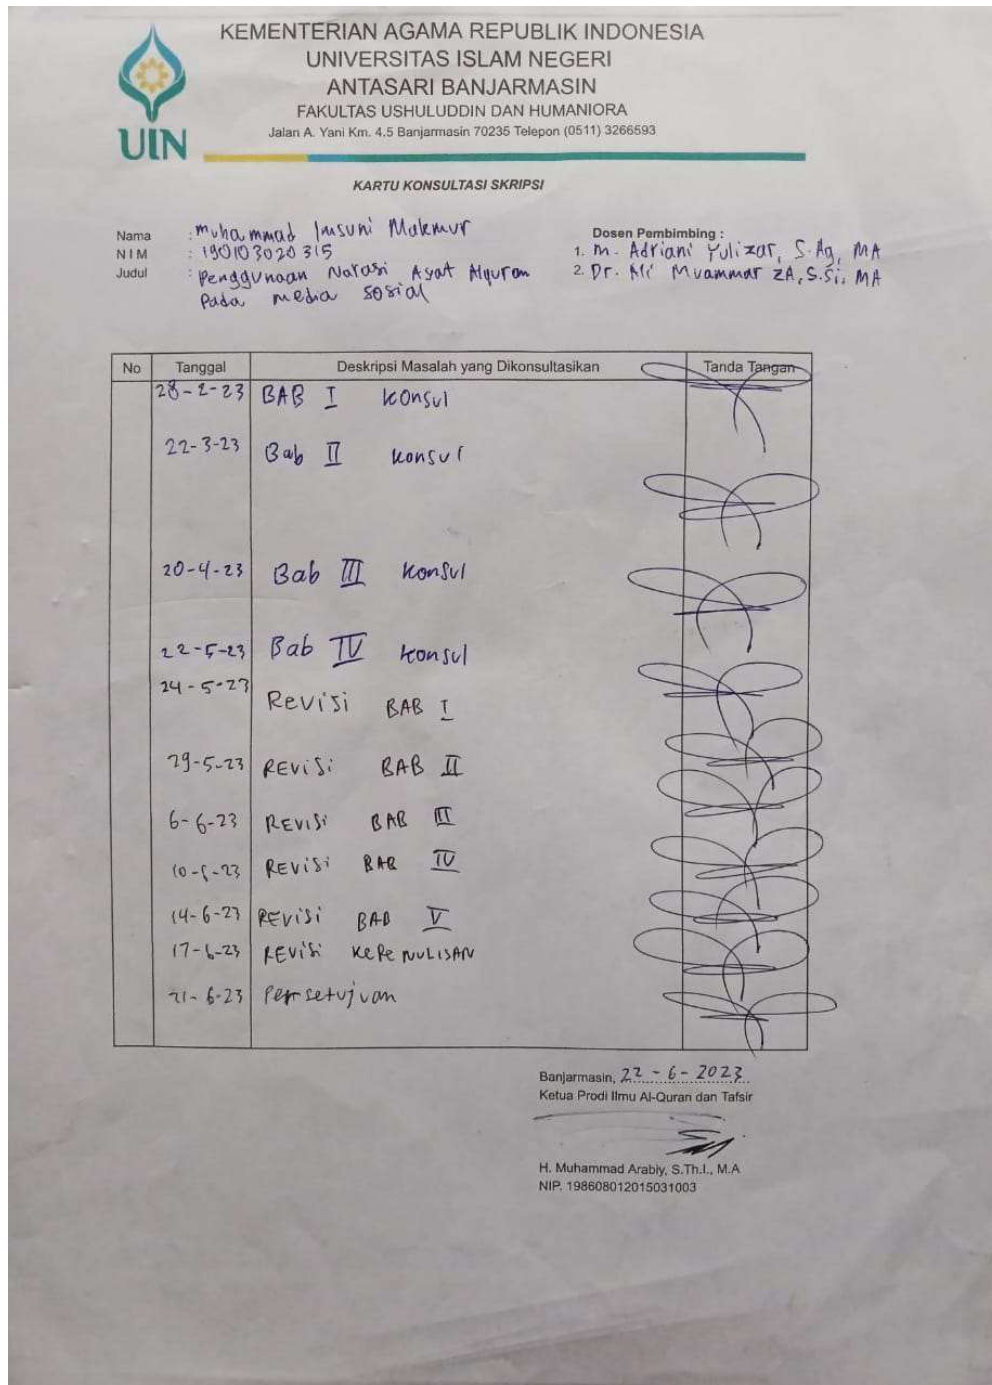 KEMENTERIAN AGAMA REPUBLIK INDONESIA
UNIVERSITAS ISLAM NEGERI
ANTASARI BANJARMASIN
FAKULTAS USHULUDDIN DAN HUMANIORA
Jalan A. Yani Km. 4.5 Banjarmasin 70235 Telepon (0511) 3266593
UIN
KARTU KONSULTASI SKRIPSI
Nama : Muhammad Imsuni Makmur
NIM : 190103020315
Judul : Penggunaan Narasi Ayat Alquran
Pada media sosial
Dosen Pembimbing :
1. M. Adriani Yulizar, S.Ag, MA
2. Dr. Ali Muammar ZA, S.Si, MA
No Tanggal Deskripsi Masalah yang Dikonsultasikan Tanda Tangan
28-2-23 BAB I Konsul
22-3-23 Bab II Konsul
20-4-23 Bab III Konsul
22-5-23 Bab IV Konsul
24-5-23 Revisi BAB I
29-5-23 REVISI BAB II
6-6-23 REVISI BAB III
10-6-23 REVISI BAB IV
14-6-23 REVISI BAB V
17-6-23 REVISI KEPENULISAN
21-6-23 Persetujuan
Banjarmasin, 22 - 6 - 2023
Ketua Prodi Ilmu Al-Quran dan Tafsir
H. Muhammad Arabiy, S.Th.I., M.A
NIP. 198608012015031003